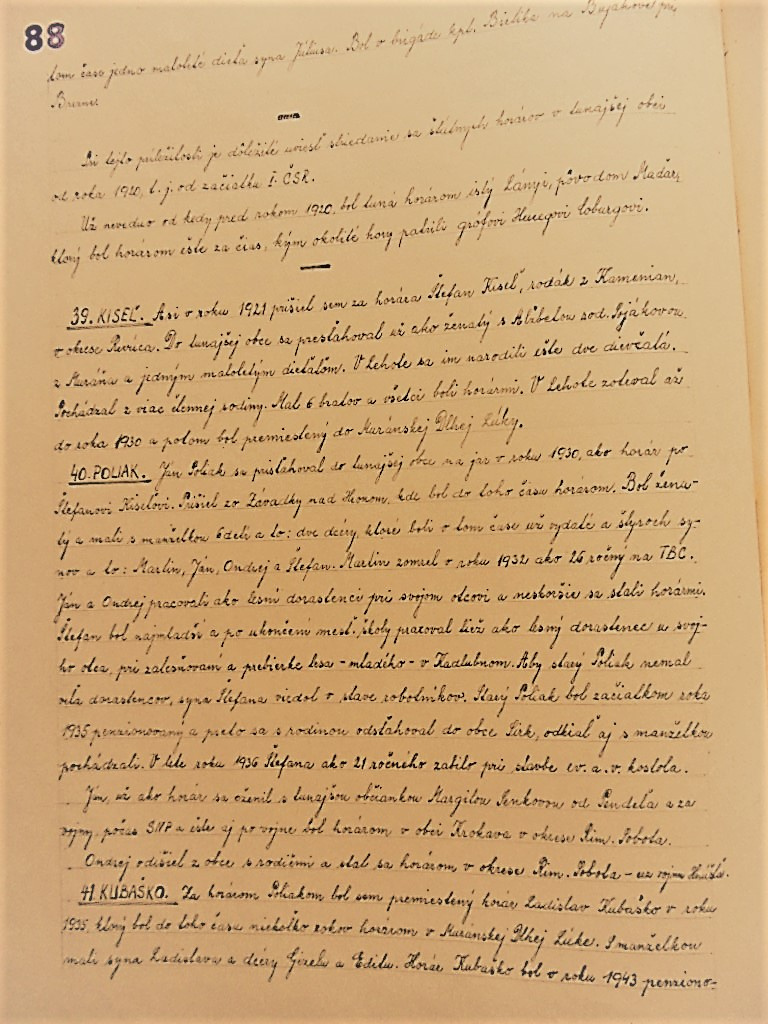 88
tom čase jedno maloleté dieťa syna Júliusa. Bol v brigáde kpt. Bielika na Bujakove pri
Brezne.
Pri tejto príležitosti je dôležité uviesť striedanie sa štátnych horárov v tunajšej obci
od roka 1920, t. j. od začiatku I. ČSR.
Už nevedno od kedy pred rokom 1920, bol tuná horárom istý Lányi, pôvodom Maďar,
ktorý bol horárom ešte za čias, kým okolité hory patrili grófovi Hercegovi Coburgovi.
39. KISEĽ. Asi v roku 1921 prišiel sem za horára Štefan Kiseľ, rodák z Kamenian,
v okrese Revúca. Do tunajšej obce sa presťahoval už ako ženatý s Alžbetou rod. Pojákovou
z Muráňa a jedným maloletým dieťaťom. V Lehote sa im narodili ešte dve dievčatá.
Pochádzal z viac člennej rodiny. Mal 6 bratov a všetci boli horármi. V Lehote zotrval až
do roka 1930 a potom bol premiestený do Muránskej Dlhej Lúky.
40. POLIAK. Ján Poliak sa prisťahoval do tunajšej obce na jar v roku 1930, ako horár po
Štefanovi Kiseľovi. Prišiel zo Závadky nad Hronom, kde bol do toho času horárom. Bol žena-
tý a mali s manželkou 6 detí a to: dve dcéry, ktoré boli v tom čase už vydaté a štyroch sy-
nov a to: Martin, Ján, Ondrej a Štefan. Martin zomrel v roku 1932 ako 26 ročný na TBC.
Ján a Ondrej pracovali ako lesní dorastenci pri svojom otcovi a neskoršie sa stali horármi.
Štefan bol najmladší a po ukončení mešť. školy pracoval tiež ako lesný dorastenec u svoj-
ho otca, pri zalesňovaní a prebierke lesa - mladého - v Kadlubnom. Aby starý Poliak nemal
veľa dorastencov, syna Štefana viedol v stave robotníkov. Starý Poliak bol začiatkom roka
1935 penzionovaný a preto sa s rodinou odsťahoval do obce Sirk, odkiaľ aj s manželkou
pochádzali. V lete roku 1936 Štefana ako 21 ročného zabilo pri stavbe ev. a. v. kostola.
Ján, už ako horár sa oženil s tunajšou občiankou Margitou Penkovou od Pendeľa a za
vojny, počas SNP a ešte aj po vojne bol horárom v obci Krokava v okrese Rim. Sobota.
Ondrej odišiel z obce s rodičmi a stal sa horárom v okrese Rim. Sobota - už vojnu
41. KUBAŠKO. Za horárom Poliakom bol sem premiestený horár Ladislav Kubaško v roku
1935, ktorý bol do toho času niekoľko rokov horárom v Muránskej Dlhej Lúke. S manželkou
mali syna Ladislava a dcéry Gizelu a Editu. Horár Kubaško bol v roku 1943 penziono-